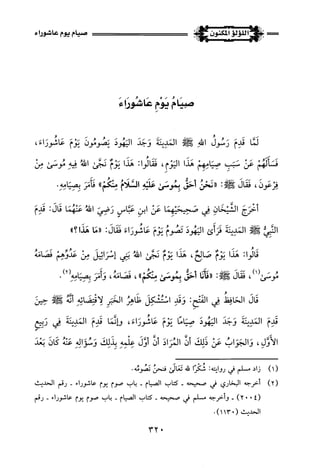 اللؤلؤ المكنون
صيام يوم عاشوراء
صِيَامُ يَوْمِ عَاشُورَاءَ
لَمَّا قَدِمَ رَسُولُ اللهِ ﷺ المَدِينَةَ وَجَدَ اليَهُودَ يَصُومُونَ يَوْمَ عَاشُورَاءَ،
فَسَأَلَهُمْ عَنْ سَبَبِ صِيَامِهِمْ هَذَا اليَوْمِ، فَقَالُوا: هَذَا يَوْمٌ نَجَّى اللهُ فِيهِ مُوسَى مِنْ
فِرْعَوْنَ، فَقَالَ ﷺ: «نَحْنُ أَحَقُّ بِمُوسَى عَلَيْهِ السَّلَامُ مِنْكُمْ» فَأَمَرَ بِصِيَامِهِ.
أَخْرَجَ الشَّيْخَانِ فِي صَحِيحَيْهِمَا عَنِ ابنِ عَبَّاسٍ رَضِيَ اللهُ عَنْهُمَا قَالَ: قَدِمَ
النَّبِيُّ ﷺ المَدِينَةَ فَرَأَى اليَهُودَ تَصُومُ يَوْمَ عَاشُورَاءَ فَقَالَ: «مَا هَذَا؟»
قَالُوا: هَذَا يَوْمٌ صَالِحٌ، هَذَا يَوْمٌ نَجَّى اللهُ بَنِي إِسْرَائِيلَ مِنْ عَدُوِّهِمْ فَصَامَهُ
مُوسَى(١)، فَقَالَ ﷺ: «فَأَنَا أَحَقُّ بِمُوسَى مِنْكُمْ»، فَصَامَهُ، وَأَمَرَ بِصِيَامِهِ(٢).
قَالَ الحَافِظُ فِي الفَتْحِ: وَقَدِ اسْتُشْكِلَ ظَاهِرُ الخَبَرِ لِاقْتِضَائِهِ أَنَّهُ ﷺ حِينَ
قَدِمَ المَدِينَةَ وَجَدَ اليَهُودَ صِيَامًا يَوْمَ عَاشُورَاءَ، وَإِنَّمَا قَدِمَ المَدِينَةَ فِي رَبِيعٍ
الأَوَّلِ، وَالجَوَابُ عَنْ ذَلِكَ أَنَّ المُرَادَ أَنَّ أَوَّلَ عِلْمِهِ بِذَلِكَ وَسُؤَالِهِ عَنْهُ كَانَ بَعْدَ
(١) زاد مسلم في روايته: شُكْرًا لله تَعَالَى فنحنُ نَصُومُه.
(٢) أخرجه البخاري في صحيحه ـ كتاب الصيام ـ باب صوم يوم عاشوراء ـ رقم الحديث
(٢٠٠٤) ـ وأخرجه مسلم في صحيحه ـ كتاب الصيام ـ باب صوم يوم عاشوراء ـ رقم
الحديث (١١٣٠).
٣٢٠